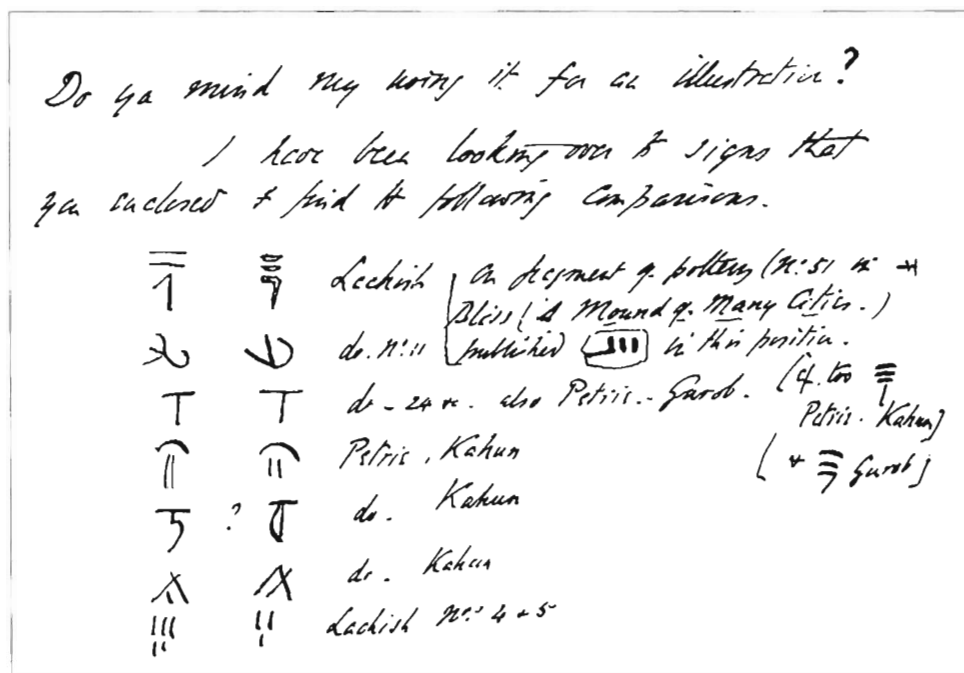 Do you mind my using it for an illustration?
I have been looking over the signs that
you enclosed & find the following comparisons.
Lachish on fragment of pottery (No. 51 in
Bliss (A Mound of Many Cities.)
do. No. 11 published in this position.
do - 24 also Petrie - Gurob. (cf. too
Petrie. Kahun)
Petrie, Kahun
( + Gurob)
? do. Kahun
do. Kahun
Lachish Nos. 4 + 5